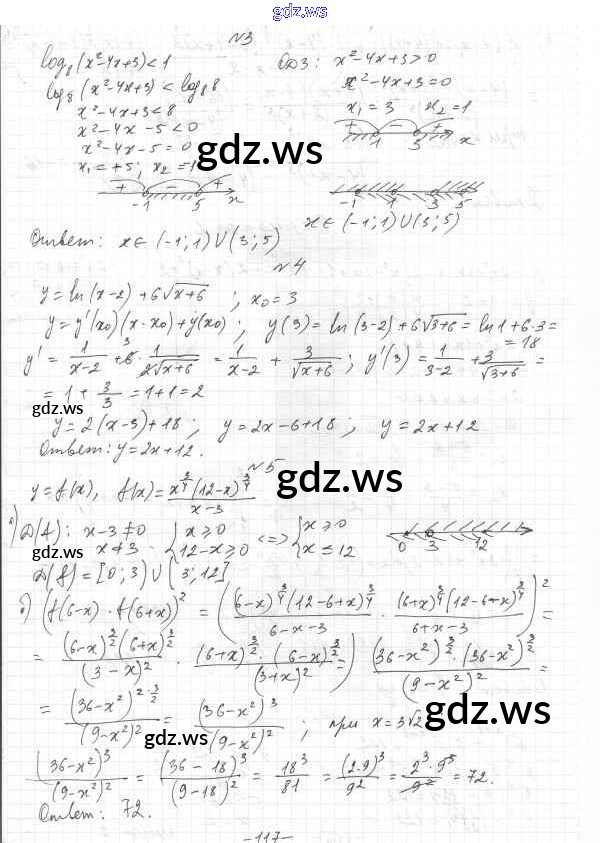 gdz.ws
№3
log₈(x²-4x+3)<1   ОДЗ: x²-4x+3>0
log₈(x²-4x+3)<log₈8   x²-4x+3=0
x²-4x+3<8   x₁=3   x₂=1
x²-4x-5<0   + - + 1 3 x
x²-4x-5=0
x₁=+5; x₂=1
gdz.ws
+ - + -1 5 x   -1 1 3 5
x∈(-1;1)∪(3;5)
Ответ: x∈(-1;1)∪(3;5)
№4
gdz.ws
y=ln(x-2)+6√(x+6); x₀=3
y=y'(x₀)(x-x₀)+y(x₀); y(3)=ln(3-2)+6√(3+6)=ln1+6·3=
=18
y'=1/(x-2)+6³·1/(2√(x+6))=1/(x-2)+3/√(x+6); y'(3)=1/(3-2)+3/√(3+6)=
=1+3/3=1+1=2
gdz.ws
gdz.ws
y=2(x-3)+18; y=2x-6+18; y=2x+12
Ответ: y=2x+12.
№5
gdz.ws
y=f(x), f(x)=x^(3/4)(12-x)^(3/4)/(x-3)
а) D(f): x-3≠0 {x≥0 <=> {x≥0   0 3 12
x≠3 {12-x≥0 {x≤12
gdz.ws
D(f)=[0;3)∪(3;12]
б) (f(6-x)·f(6+x))²=((6-x)^(3/4)(12-6+x)^(3/4)/(6-x-3)·(6+x)^(3/4)(12-6-x)^(3/4)/(6+x-3))²=
=(6-x)^(3/2)(6+x)^(3/2)/(3-x)²·(6+x)^(3/2)·(6-x)^(3/2)/(3+x)²=)(36-x²)^(3/2)·(36-x²)^(3/2)/(9-x²)²=
=(36-x²)^(2·3/2)/(9-x²)²=(36-x²)³/(9-x²)²; при x=3√2
gdz.ws
gdz.ws
(36-x²)³/(9-x²)²=(36-18)³/(9-18)²=18³/81=(2·9)³/9²=2³·9³/9²=72.
Ответ: 72.
-117-
gdz.ws